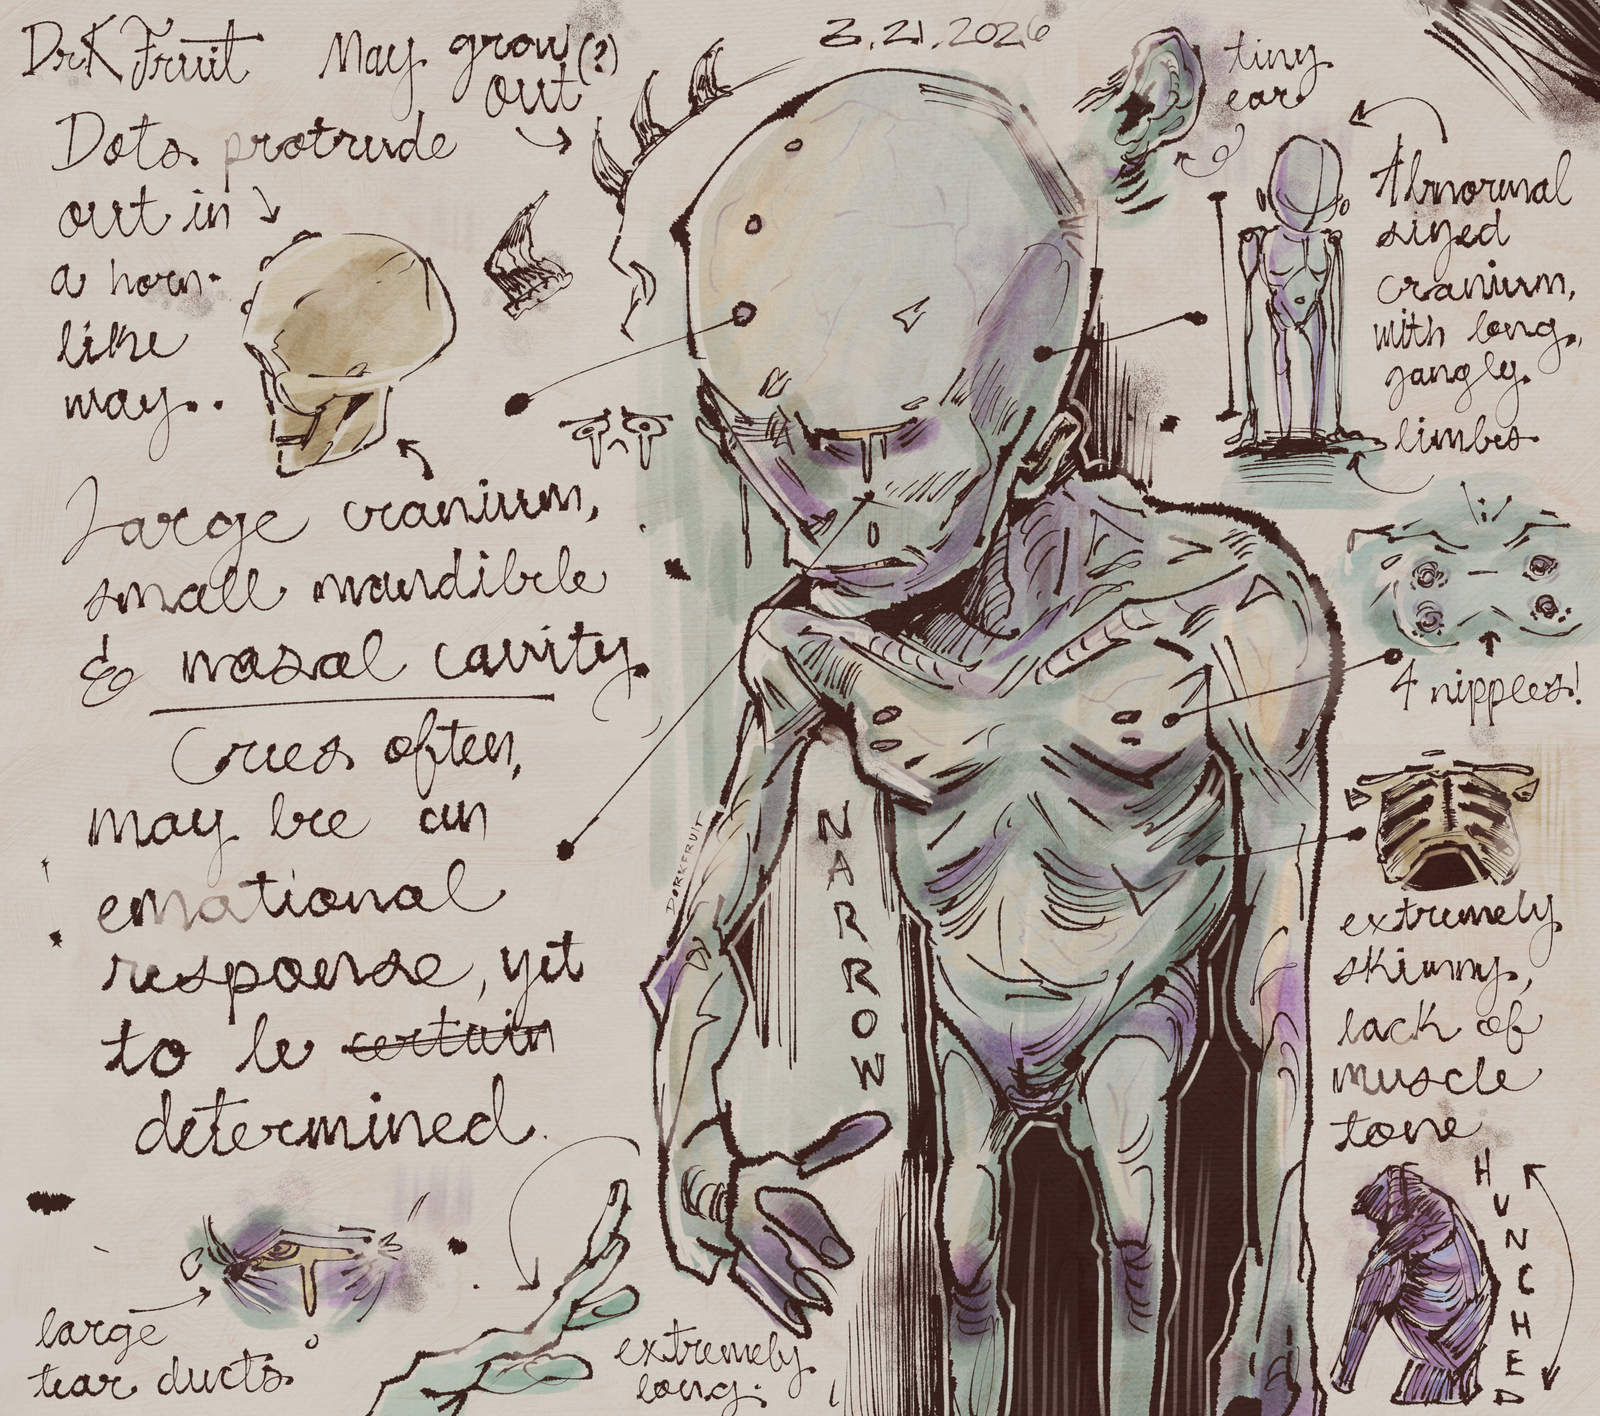 DrK Fruit
May grow(?)
out
3.21.2026
Dots protrude
out in
a horn-
like
way..
tiny
ear
Abnormal
sized
cranium,
with long,
gangly
limbs
Large cranium,
small mandible
& nasal cavity.
Cries often,
may be an
emotional
response, yet
to be certain
determined.
large
tear ducts.
extremely
long.
DORKFRUIT
NARROW
4 nipples!
extremely
skinny,
lack of
muscle
tone
HUNCHED